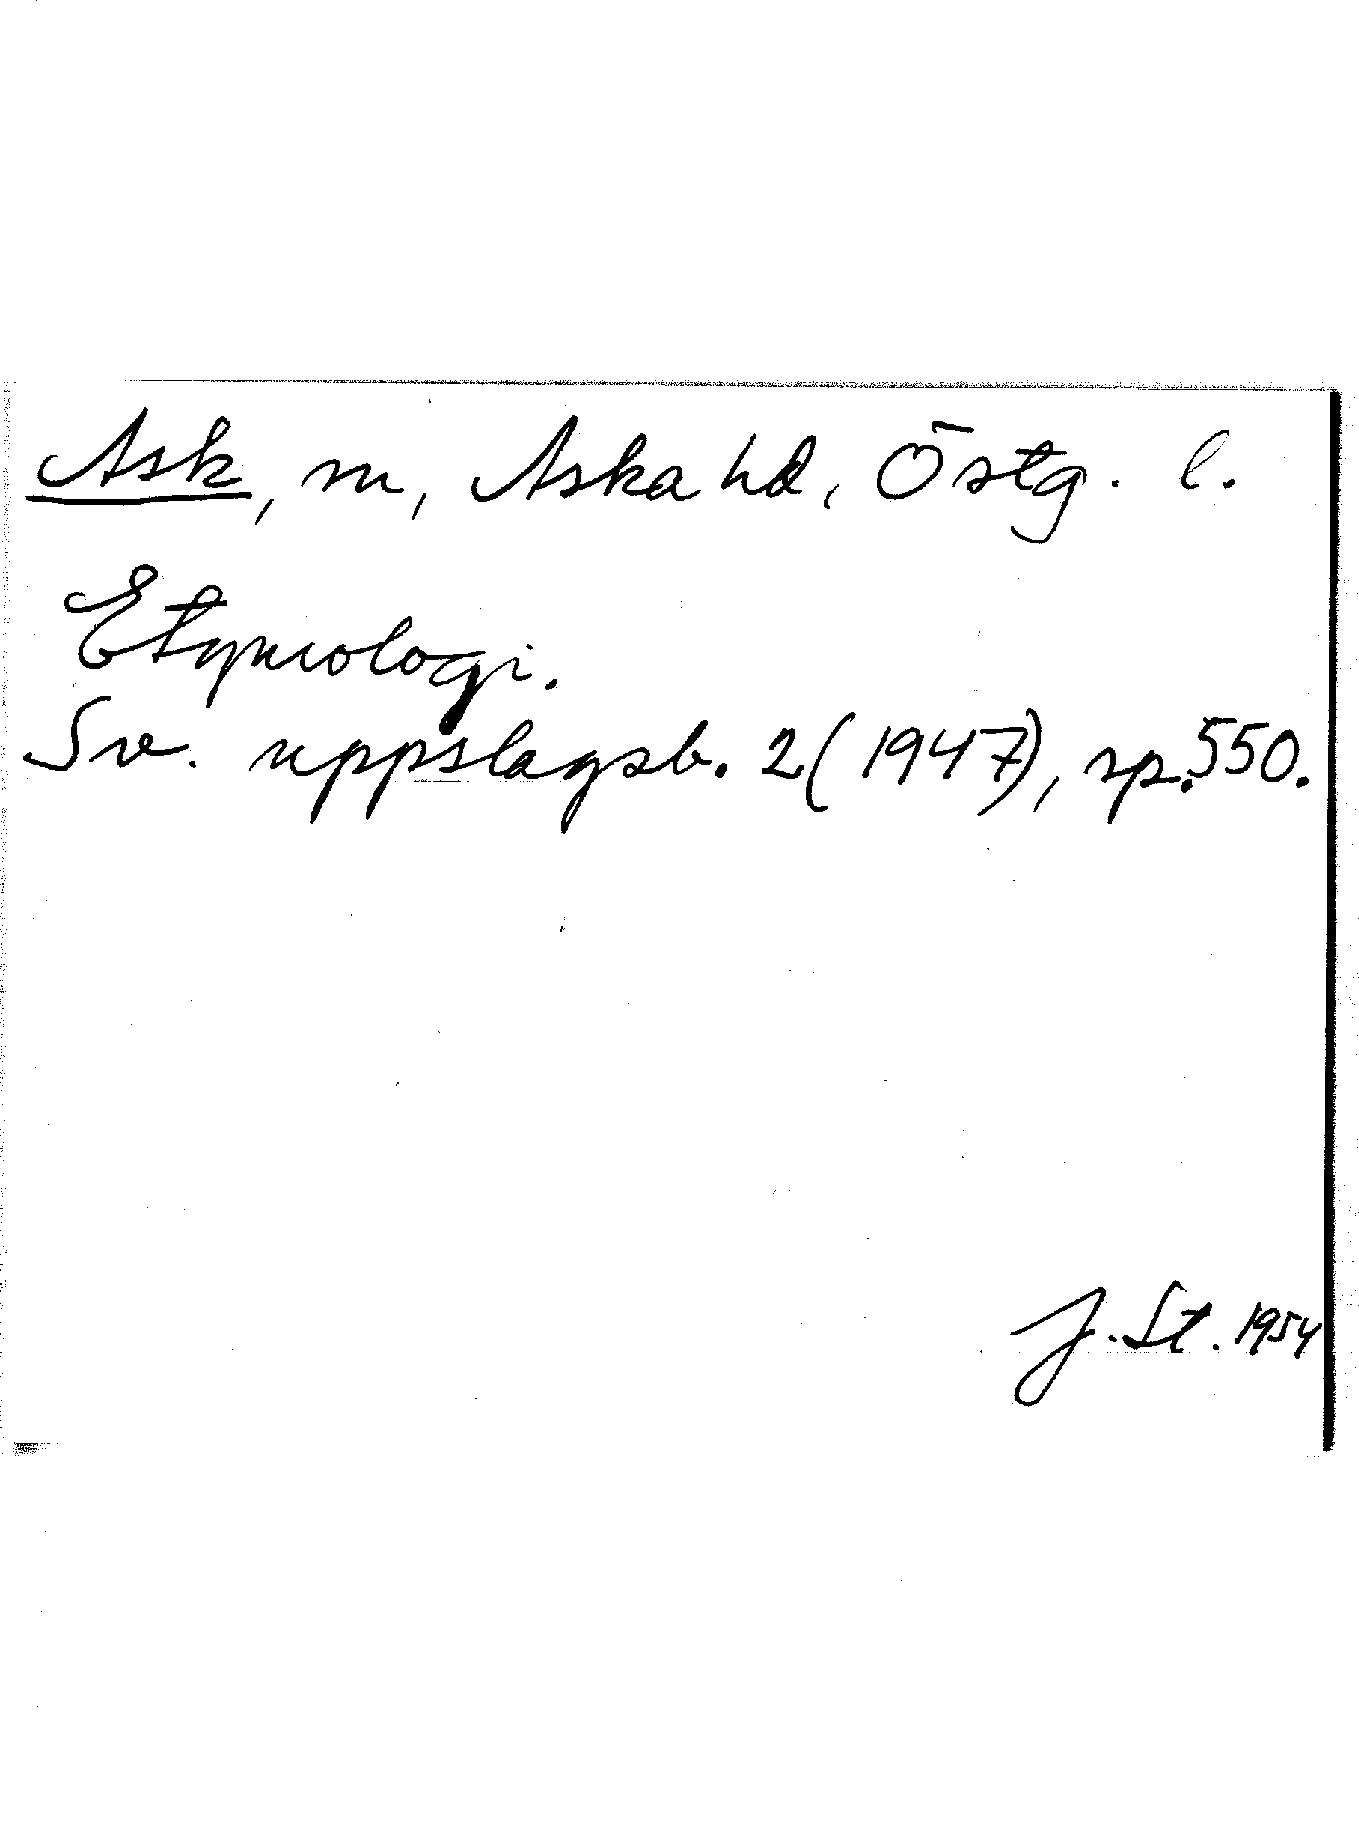 Ask, m, Aska hd, Östg. l.
Etymologi.
Sv. uppslagsb. 2 (1947), sp. 550.
J. St. 1954